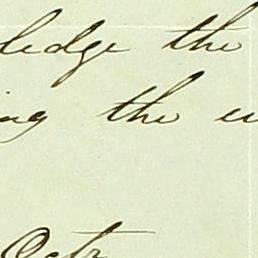 ledge the
ing the
Octr